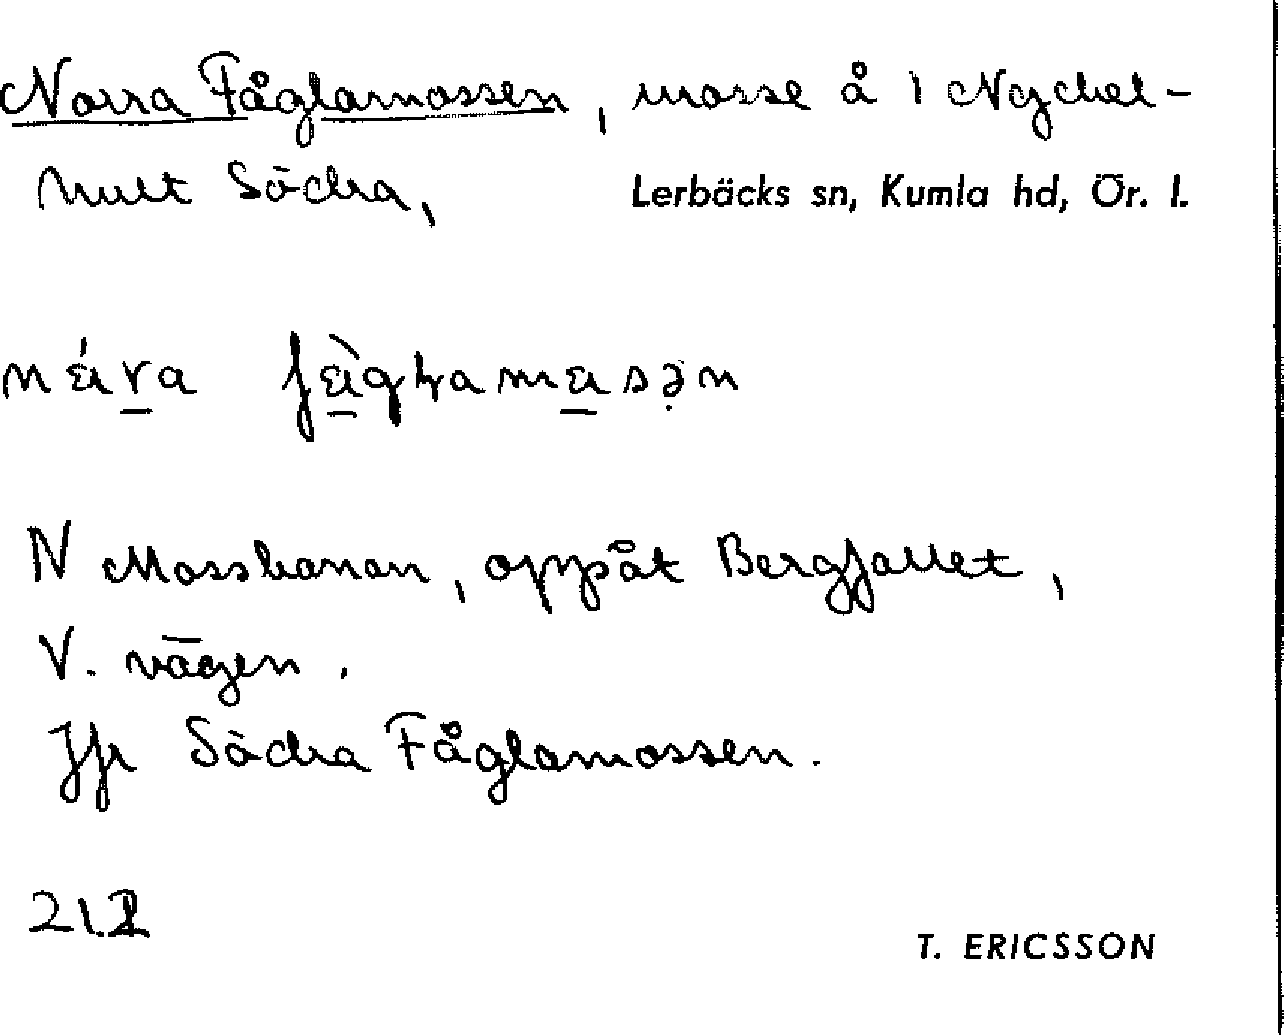 Norra Fåglamossen, mosse å 1 Nyckel-
hult Södra, Lerbäcks sn, Kumla hd, Ör. l.
N Mossbanan, oppåt Bergfallet,
V. vägen.
Jfr Södra Fåglamossen.
T. ERICSSON